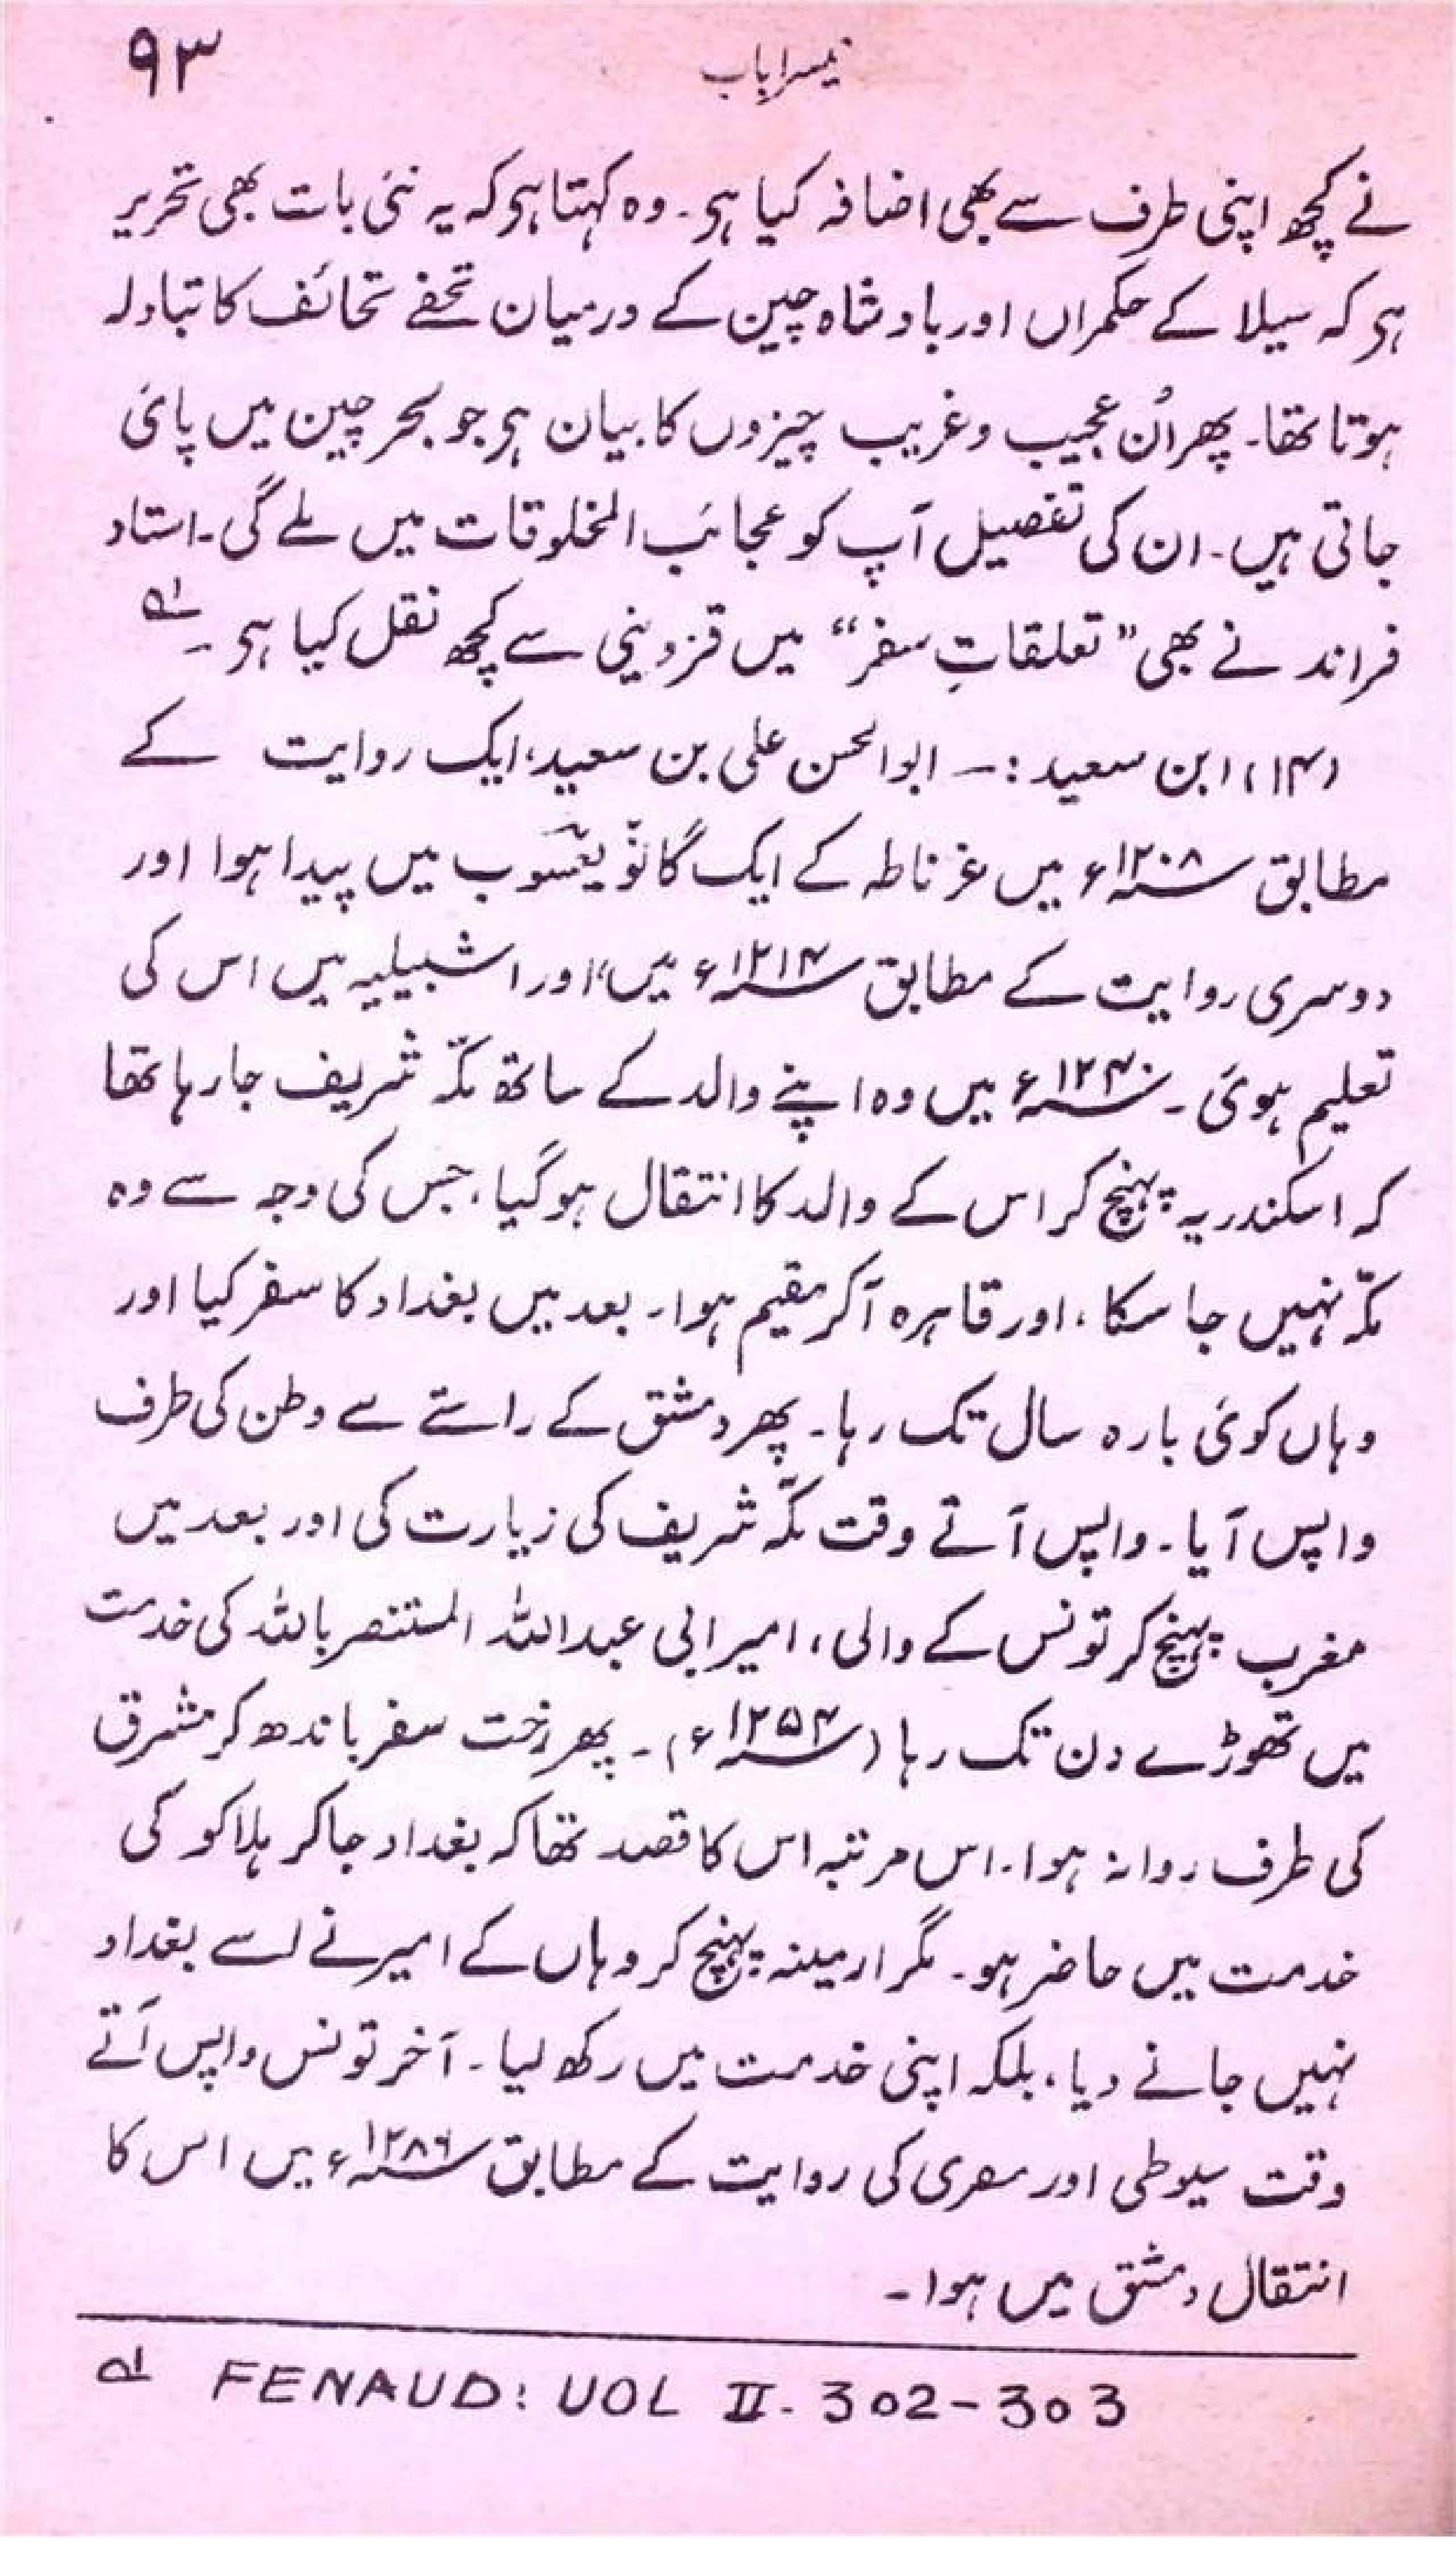 تیسرا باب ۹۳
نے کچھ اپنی طرف سے بھی اضافہ کیا ہی۔ وہ کہتا ہی کہ یہ نئی بات بھی تحریر
ہی کہ سیلا کے حکمراں اور بادشاہ چین کے درمیان تحفے تحائف کا تبادلہ
ہوتا تھا۔ پھر اُن عجیب و غریب چیزوں کا بیان ہی جو بحر چین میں پائی
جاتی ہیں۔ ان کی تفصیل آپ کو عجائب المخلوقات میں ملے گی۔ استاد
فراند نے بھی ”تعلقاتِ سفر“ میں قزوینی سے کچھ نقل کیا ہی۔ لہ
(۱۴) ابن سعید :۔ ابوالحسن علی بن سعید، ایک روایت کے
مطابق ۱۲۰۸ء میں غرناطہ کے ایک گانؤ یحسوب میں پیدا ہوا اور
دوسری روایت کے مطابق ۱۲۱۴ء میں، اور اشبیلیہ میں اس کی
تعلیم ہوئی۔ ۱۲۴۰ء میں وہ اپنے والد کے ساتھ مکّہ شریف جا رہا تھا
کہ اسکندریہ پہنچ کر اس کے والد کا انتقال ہوگیا، جس کی وجہ سے وہ
مکّہ نہیں جا سکا، اور قاہرہ آکر مقیم ہوا۔ بعد میں بغداد کا سفر کیا اور
وہاں کوئی بارہ سال تک رہا۔ پھر دمشق کے راستے سے وطن کی طرف
واپس آیا۔ واپس آتے وقت مکّہ شریف کی زیارت کی اور بعد میں
مغرب پہنچ کر تونس کے والی، امیر ابی عبداللہ المستنصر باللہ کی خدمت
میں تھوڑے دن تک رہا (۱۲۵۴ء)۔ پھر رخت سفر باندھ کر مشرق
کی طرف روانہ ہوا۔ اس مرتبہ اس کا قصد تھا کہ بغداد جاکر ہلاکو کی
خدمت میں حاضر ہو۔ مگر ارمینہ پہنچ کر وہاں کے امیر نے اسے بغداد
نہیں جانے دیا، بلکہ اپنی خدمت میں رکھ لیا۔ آخر تونس واپس آتے
وقت سیوطی اور مصری کی روایت کے مطابق ۱۲۸۶ء میں اس کا
انتقال دمشق میں ہوا۔
لہ FENAUD: UOL II. 302-303